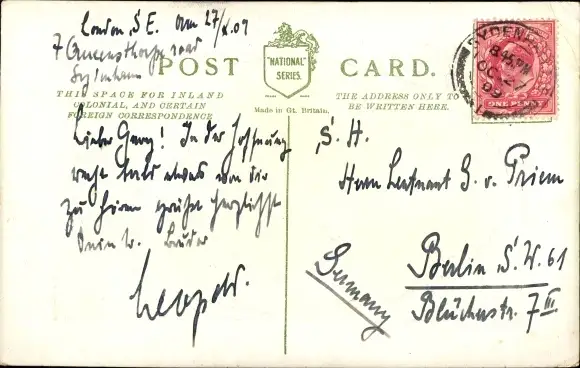 London, S.E. am 27/X.09
7 Queensthorpe road
Sydenham
POST CARD.
"NATIONAL"
SERIES.
THIS SPACE FOR INLAND
COLONIAL, AND CERTAIN
FOREIGN CORRESPONDENCE
Made in Gt. Britain.
THE ADDRESS ONLY TO
BE WRITTEN HERE.
SYDENH
8.15 PM
OC 2
09
ONE PENNY
Lieber Georg! In der Hoffnung
recht bald etwas von dir
zu hören grüßt herzlichst
Dein tr. Bruder
Leopold.
S. H.
Herrn Leutnant G. v. Priem
Berlin S.W. 61
Blücherstr. 7 III
Germany